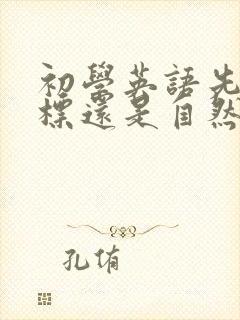 初學英語先
標還是自然
孔侑